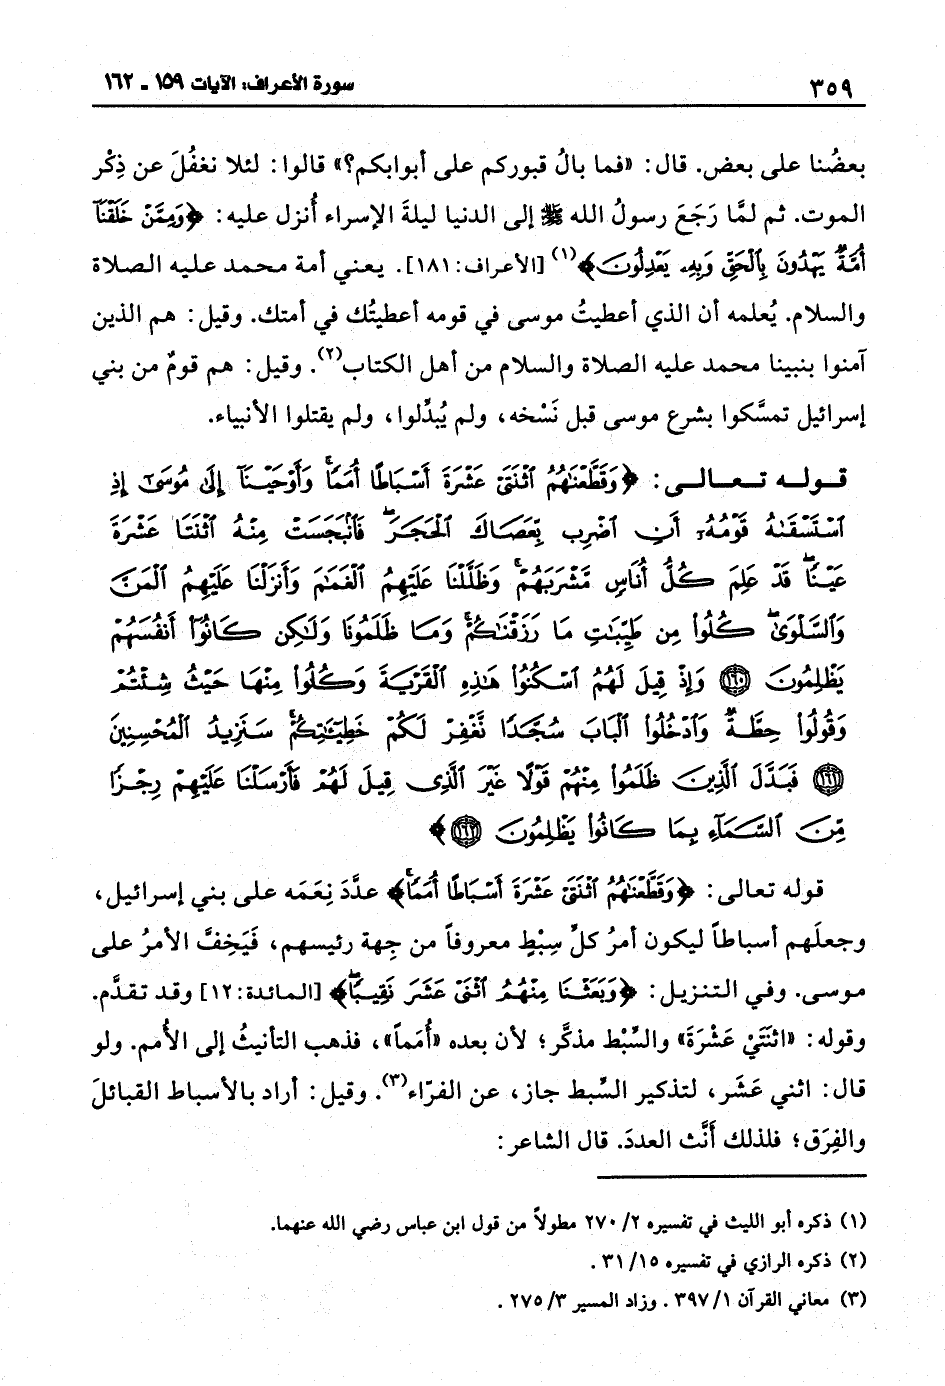 ٣٥٩ سورة الأعراف: الآيات ١٥٩ ـ ١٦٢
بعضُنا على بعض. قال: «فما بالُ قبوركم على أبوابكم؟» قالوا: لئلا نغفُلَ عن ذِكْر
الموت. ثم لمَّا رَجَعَ رسولُ الله ﷺ إلى الدنيا ليلةَ الإسراء أُنزل عليه: ﴿وَمِمَّنْ خَلَقْنَا
أُمَّةٌ يَهْدُونَ بِالْحَقِّ وَبِهِ يَعْدِلُونَ﴾(١) [الأعراف:١٨١]. يعني أمة محمد عليه الصلاة
والسلام. يُعلمه أن الذي أعطيتُ موسى في قومه أعطيتُك في أمتك. وقيل: هم الذين
آمنوا بنبينا محمد عليه الصلاة والسلام من أهل الكتاب(٢). وقيل: هم قومٌ من بني
إسرائيل تمسَّكوا بشرع موسى قبل نَسْخه، ولم يُبدِّلوا، ولم يقتلوا الأنبياء.
قوله تعالى: ﴿وَقَطَّعْنَٰهُمُ ٱثْنَتَىْ عَشْرَةَ أَسْبَاطًا أُمَمًا ۚ وَأَوْحَيْنَآ إِلَىٰ مُوسَىٰٓ إِذِ
ٱسْتَسْقَىٰهُ قَوْمُهُۥٓ أَنِ ٱضْرِب بِّعَصَاكَ ٱلْحَجَرَ ۖ فَٱنۢبَجَسَتْ مِنْهُ ٱثْنَتَا عَشْرَةَ
عَيْنًا ۖ قَدْ عَلِمَ كُلُّ أُنَاسٍ مَّشْرَبَهُمْ ۚ وَظَلَّلْنَا عَلَيْهِمُ ٱلْغَمَٰمَ وَأَنزَلْنَا عَلَيْهِمُ ٱلْمَنَّ
وَٱلسَّلْوَىٰ ۖ كُلُوا۟ مِن طَيِّبَٰتِ مَا رَزَقْنَٰكُمْ ۚ وَمَا ظَلَمُونَا وَلَٰكِن كَانُوٓا۟ أَنفُسَهُمْ
يَظْلِمُونَ ١٦٠ وَإِذْ قِيلَ لَهُمُ ٱسْكُنُوا۟ هَٰذِهِ ٱلْقَرْيَةَ وَكُلُوا۟ مِنْهَا حَيْثُ شِئْتُمْ
وَقُولُوا۟ حِطَّةٌ وَٱدْخُلُوا۟ ٱلْبَابَ سُجَّدًا نَّغْفِرْ لَكُمْ خَطِيٓـَٰٔتِكُمْ ۚ سَنَزِيدُ ٱلْمُحْسِنِينَ
١٦١ فَبَدَّلَ ٱلَّذِينَ ظَلَمُوا۟ مِنْهُمْ قَوْلًا غَيْرَ ٱلَّذِى قِيلَ لَهُمْ فَأَرْسَلْنَا عَلَيْهِمْ رِجْزًا
مِّنَ ٱلسَّمَآءِ بِمَا كَانُوا۟ يَظْلِمُونَ ١٦٢﴾
قوله تعالى: ﴿وَقَطَّعْنَٰهُمُ ٱثْنَتَىْ عَشْرَةَ أَسْبَاطًا أُمَمًا ۚ﴾ عدَّدَ نِعَمَه على بني إسرائيل،
وجعلَهم أسباطاً ليكون أمرُ كلِّ سِبْطٍ معروفاً من جِهة رئيسهم، فَيَخِفَّ الأمرُ على
موسى. وفي التنزيل: ﴿وَبَعَثْنَا مِنْهُمُ ٱثْنَىْ عَشَرَ نَقِيبًا ۖ﴾ [المائدة:١٢] وقد تقدَّم.
وقوله: «اثنَتَيْ عَشْرَةَ» والسِّبْط مذكَّر؛ لأن بعده «أُمَماً»، فذهب التأنيثُ إلى الأُمم. ولو
قال: اثني عَشَر، لتذكير السِّبط جاز، عن الفرّاء(٣). وقيل: أراد بالأسباط القبائلَ
والفِرَق؛ فلذلك أَنَّث العددَ. قال الشاعر:
(١) ذكره أبو الليث في تفسيره ٢/ ٢٧٠ مطولاً من قول ابن عباس رضي الله عنهما.
(٢) ذكره الرازي في تفسيره ١٥/ ٣١ .
(٣) معاني القرآن ١/ ٣٩٧ . وزاد المسير ٣/ ٢٧٥ .